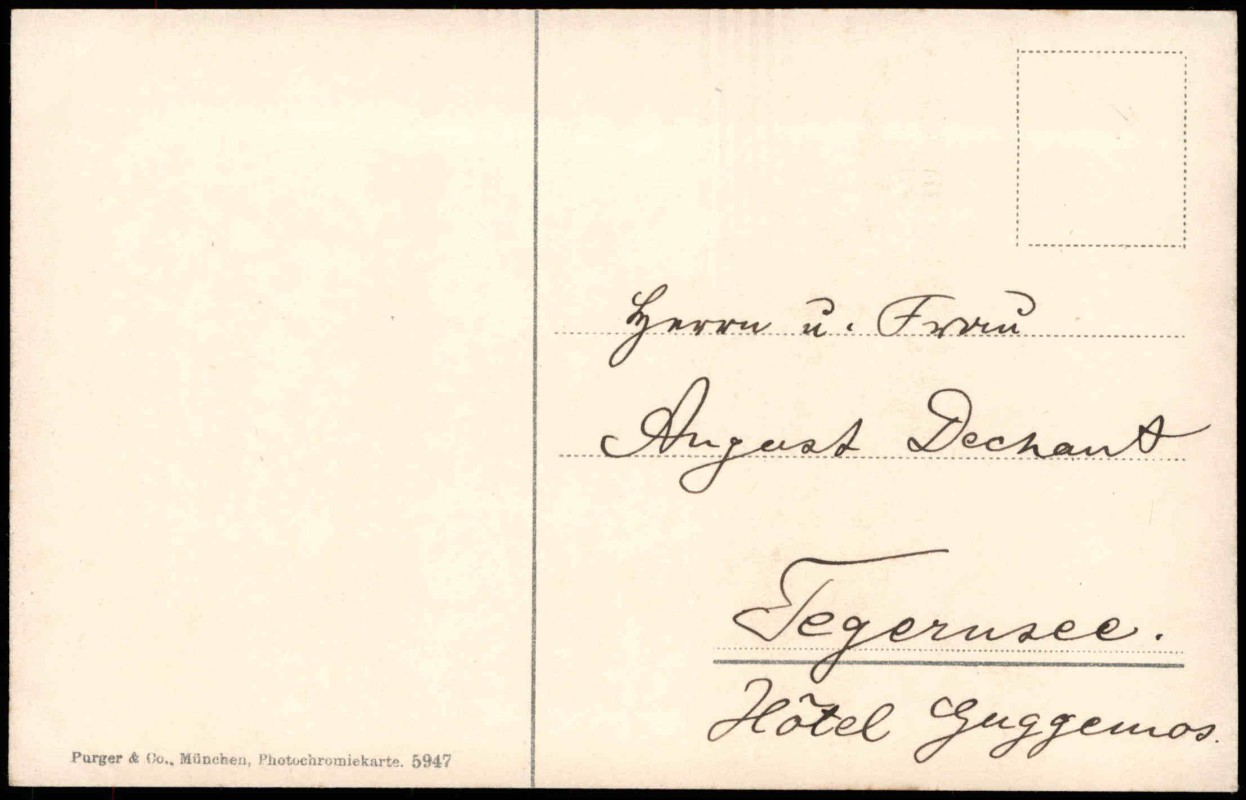 Herrn u. Frau
August Dechant
Tegernsee.
Hôtel Guggemos.
Purger & Co., München, Photochromiekarte. 5947